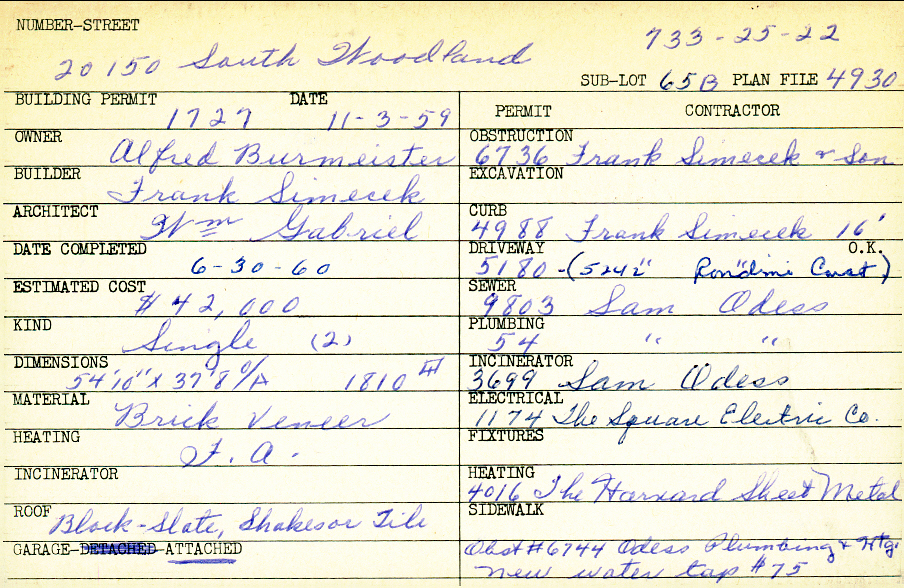 NUMBER-STREET
733-25-22
20150 South Woodland
SUB-LOT 65B PLAN FILE 4930
BUILDING PERMIT DATE
1727 11-3-59
PERMIT CONTRACTOR
OWNER
Alfred Burmeister
OBSTRUCTION
6736 Frank Simecek & Son
BUILDER
Frank Simecek
EXCAVATION
ARCHITECT
Wm Gabriel
CURB
4988 Frank Simecek 16'
DATE COMPLETED
6-30-60
DRIVEWAY O.K.
5180 - (5242" Const)
ESTIMATED COST
$42,000
SEWER
9803 Sam Odess
KIND
Single (2)
PLUMBING
54 " "
DIMENSIONS
54'10" X 37'8 O/A 1810
INCINERATOR
3699 Sam Odess
MATERIAL
Brick Veneer
ELECTRICAL
1174 The Square Electric Co.
HEATING
F. A.
FIXTURES
INCINERATOR
HEATING
4016 The Harvard Sheet Metal
ROOF
Black-Slate, Shakes or Tile
SIDEWALK
GARAGE-DETACHED-ATTACHED
Obst #6744 Odess Plumbing & Htg.
new water tap #75